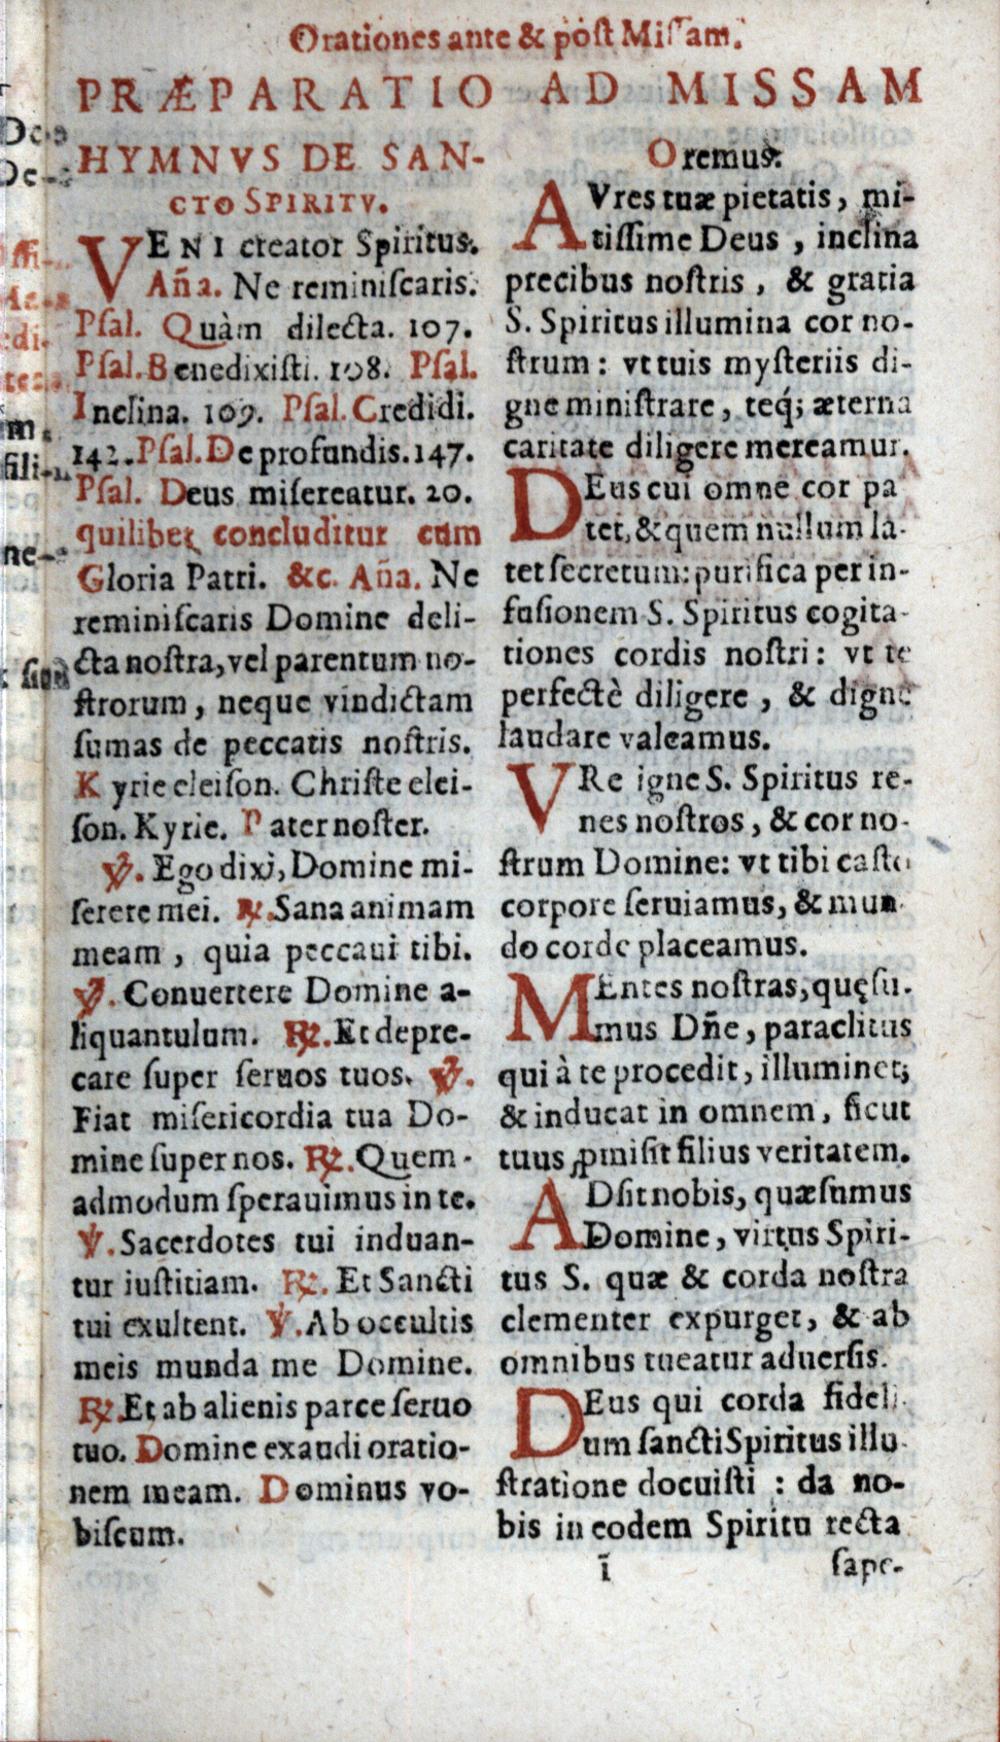 Orationes ante & póſt Miſſam.
PRÆPARATIO AD MISSAM
HYMNVS DE SAN-
CTO SPIRITV.
VENI creator Spiritus.
Aña. Ne reminiſcaris.
Pſal. Quàm dilecta. 107.
Pſal. Benedixiſti. 108. Pſal.
Inclina. 109. Pſal. Credidi.
142. Pſal. De profundis. 147.
Pſal. Deus miſereatur. 20.
quilibet concluditur cum
Gloria Patri. &c. Aña. Ne
reminiſcaris Domine deli-
cta noſtra, vel parentum no-
ſtrorum, neque vindictam
ſumas de peccatis noſtris.
Kyrie eleiſon. Chriſte elei-
ſon. Kyrie. Pater noſter.
℣. Ego dixi, Domine mi-
ſerere mei. ℟. Sana animam
meam, quia peccaui tibi.
℣. Conuertere Domine a-
liquantulum. ℟. Et depre-
care ſuper ſeruos tuos. ℣.
Fiat miſericordia tua Do-
mine ſuper nos. ℟. Quem-
admodum ſperauimus in te.
℣. Sacerdotes tui induan-
tur iuſtitiam. ℟. Et Sancti
tui exultent. ℣. Ab occultis
meis munda me Domine.
℟. Et ab alienis parce ſeruo
tuo. Domine exaudi oratio-
nem meam. Dominus vo-
biſcum.
Oremus.
AVres tuæ pietatis, mi-
tiſſime Deus, inclina
precibus noſtris, & gratia
S. Spiritus illumina cor no-
ſtrum: vt tuis myſteriis di-
gne miniſtrare, teq́; æterna
caritate diligere mereamur.
DEus cui omne cor pa
tet, & quem nullum la-
tet ſecretum: purifica per in-
fuſionem S. Spiritus cogita-
tiones cordis noſtri: vt te
perfectè diligere, & digne
laudare valeamus.
VRe igne S. Spiritus re-
nes noſtros, & cor no-
ſtrum Domine: vt tibi caſto
corpore ſeruiamus, & mun-
do corde placeamus.
MEntes noſtras, quęſu-
mus Dñe, paraclitus
qui à te procedit, illuminet;
& inducat in omnem, ſicut
tuus ꝓmiſit filius veritatem.
ADſit nobis, quæſumus
Domine, virtus Spiri-
tus S. quæ & corda noſtra
clementer expurget, & ab
omnibus tueatur aduerſis.
DEus qui corda fideli-
um ſancti Spiritus illu-
ſtratione docuiſti : da no-
bis in eodem Spiritu recta
ĩ
ſape-